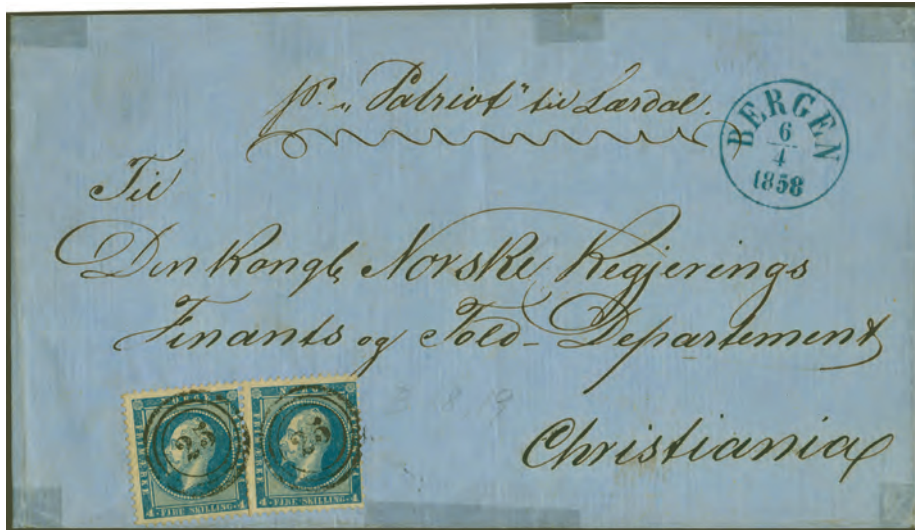 pr. „Patriot" til Lærdal.
BERGEN
6
4
1858
Til
Den Kongl. Norske Regjerings
Finants og Told-Departement
Christiania
NORGE NORGE
4 FIRE SKILLING 4 4 FIRE SKILLING 4
3 18 19